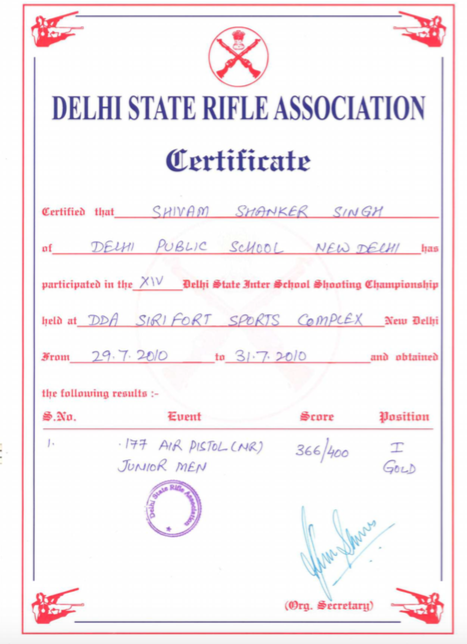 DELHI STATE RIFLE ASSOCIATION
Certificate
Certified that SHIVAM SHANKER SINGH
of DELHI PUBLIC SCHOOL NEW DELHI has
participated in the XIV Delhi State Inter School Shooting Championship
held at DDA SIRI FORT SPORTS COMPLEX New Delhi
From 29.7.2010 to 31.7.2010 and obtained
the following results :-
S.No. Event Score Position
1. .177 AIR PISTOL (NR) 366/400 I
JUNIOR MEN GOLD
Delhi State Rifle Association
(Org. Secretary)